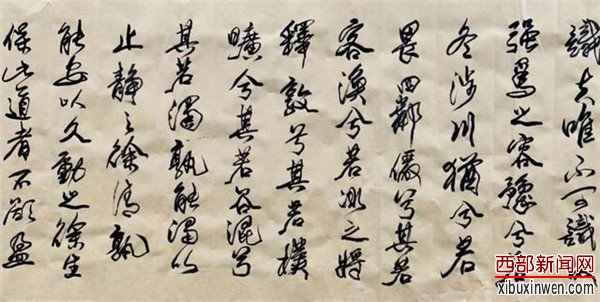 識夫唯不可識故
强為之容豫兮若
冬涉川猶兮若
畏四鄰儼兮其若
客渙兮若冰之將
釋敦兮其若樸
曠兮其若谷混兮
其若濁孰能濁以
止靜之徐清孰
能安以久動之徐生
保此道者不欲盈
西部新闻网
xibuxinwen.com